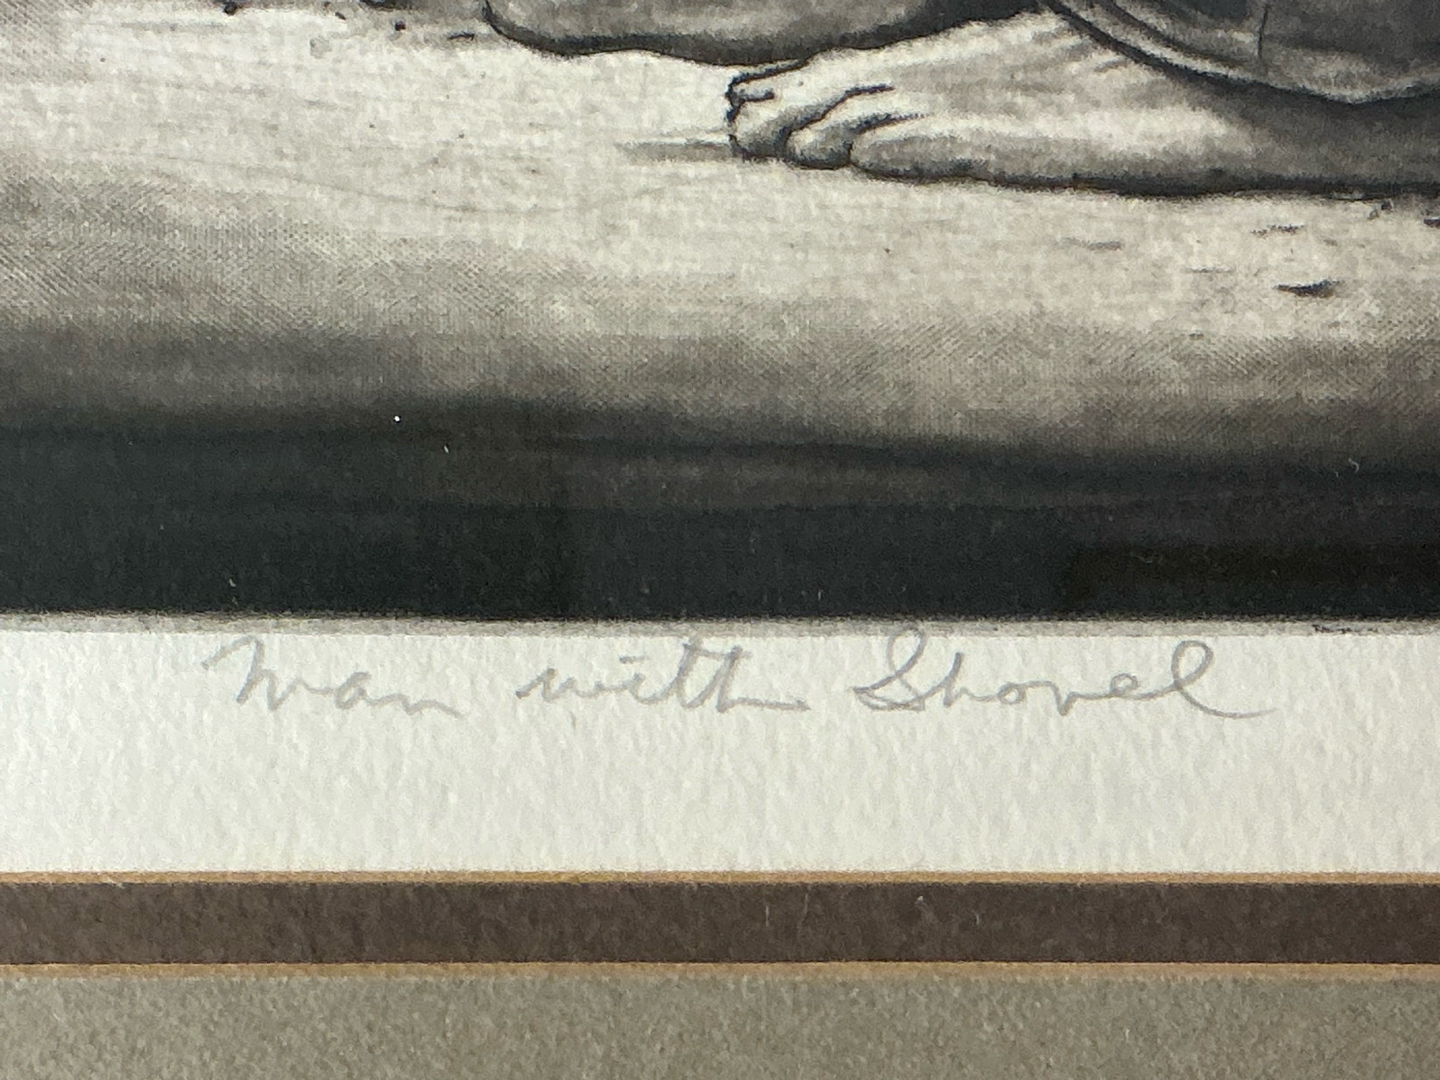 Man with Shovel